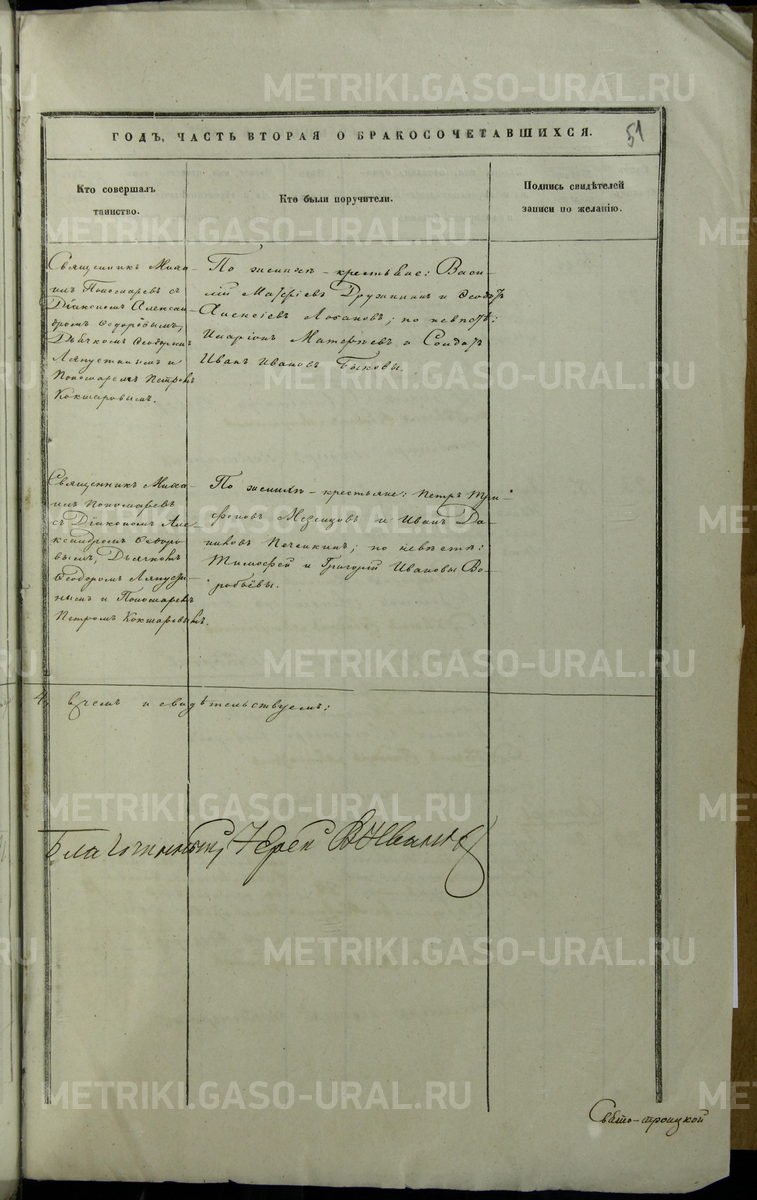 51
ГОДЪ, ЧАСТЬ ВТОРАЯ О БРАКОСОЧЕТАВШИХСЯ.
Кто совершалъ
таинство.
Кто были поручители.
Подпись свидѣтелей
записи по желанію.
Священникъ Миха-
илъ Пономаревъ съ
Діакономъ Алексан-
дромъ Ѳедоровымъ,
Дьячкомъ Ѳеодоромъ
Ляпустинымъ и
Пономаремъ Петромъ
Кокшаровымъ.
По женихѣ - крестьяне: Васи-
лій Матѳіевъ Дружининъ и Ѳеодоръ
Алексіевъ Лобановъ; по невѣстѣ:
Иларіонъ Матвѣевъ и Солдатъ
Иванъ Ивановъ Быковы.
Священникъ Миха-
илъ Пономаревъ
съ Діакономъ Але-
ксандромъ Ѳедоро-
вымъ, Дьячкомъ
Ѳеодоромъ Ляпусти-
нымъ и Пономаремъ
Петромъ Кокшаровымъ.
По женихѣ - крестьяне: Петръ Три-
фоновъ и Иванъ Да-
ниловъ Печенкинъ; по невѣстѣ:
Тимоѳей и Григорій Ивановы Во-
робьёвы.
въ чемъ и свидѣтельствуемъ:
Благочинный, Іерей В Ивановъ
Свято-троицкой
METRIKI.GASO-URAL.RU